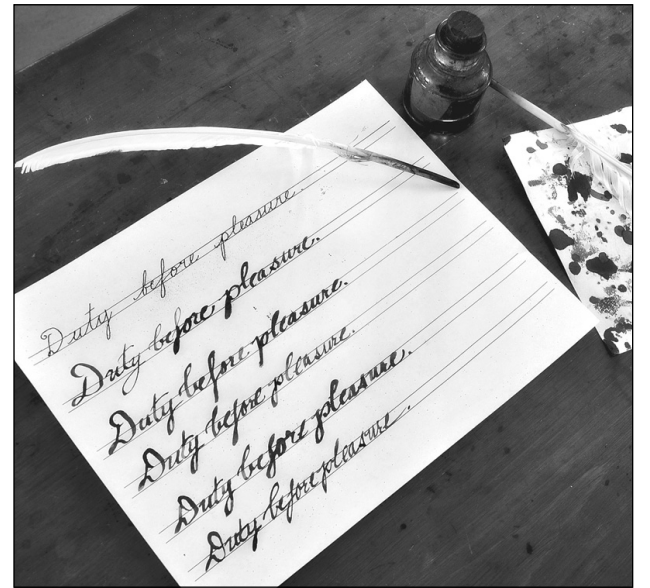 Duty before pleasure.
Duty before pleasure.
Duty before pleasure.
Duty before pleasure.
Duty before pleasure.
Duty before pleasure.